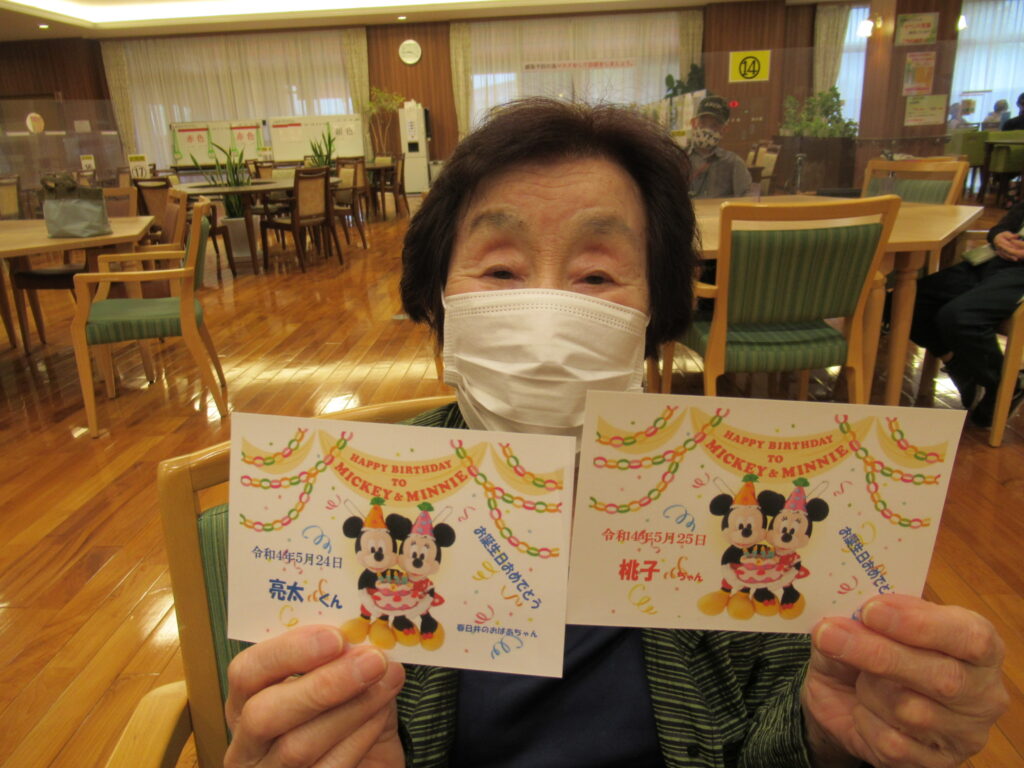 ⑭
赤色
赤色
銀色
HAPPY BIRTHDAY
TO
MICKEY & MINNIE
令和4年5月24日
亮太くん
お誕生日おめでとう
春日井のおばあちゃん
HAPPY BIRTHDAY
TO
MICKEY & MINNIE
令和4年5月25日
桃子ちゃん
お誕生日おめでとう